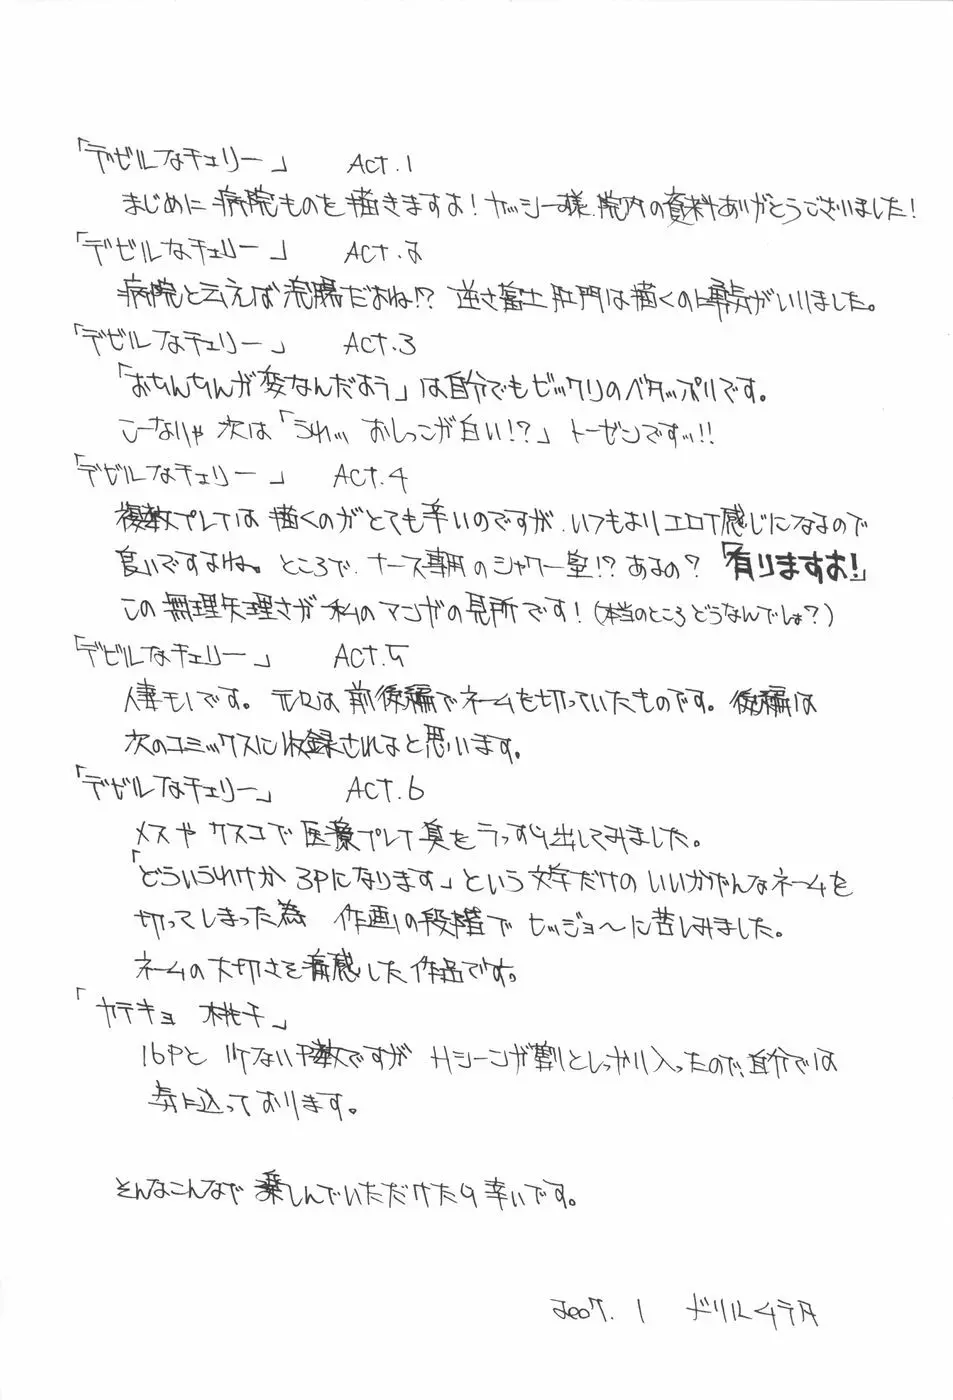 「デビルなチェリー」 Act.1
まじめに病院ものを描きますよ！ヤッシー様、院内の資料ありがとうございました！
「デビルなチェリー」 Act.2
病院と云えば浣腸だよね!? 逆さ富士肛門は描くのに勇気がいりました。
「デビルなチェリー」 Act.3
「おちんちんが変なんだよう」は自分でもビックリのベタップリです。
こーなりゃ次は「うわッ おしっこが白い!?」トーゼンですッ!!
「デビルなチェリー」 Act.4
複数プレイは描くのがとても辛いのですが、いつもよりエロイ感じになるので
良いですよね。ところで、ナース専用のシャワー室!? あるの？「有りますよ!」
この無理矢理さが私のマンガの見所です！（本当のところどうなんでしょ？）
「デビルなチェリー」 Act.5
人妻モノです。元々は前後編でネームを切っていたものです。後編は
次のコミックスに収録されると思います。
「デビルなチェリー」 Act.6
メスやクスコで医療プレイ臭をうっすら出してみました。
「どういうわけか3Pになります」という文字だけのいいかげんなネームを
切ってしまった為 作画の段階でヒッジョ〜に苦しみました。
ネームの大切さを痛感した作品です。
「カテキョ 桃子」
16Pと少ないP数ですがHシーンが割としっかり入ったので、自分では
気に入っております。
そんなこんなで楽しんでいただけたら幸いです。
2007.1 ドリルムラタ